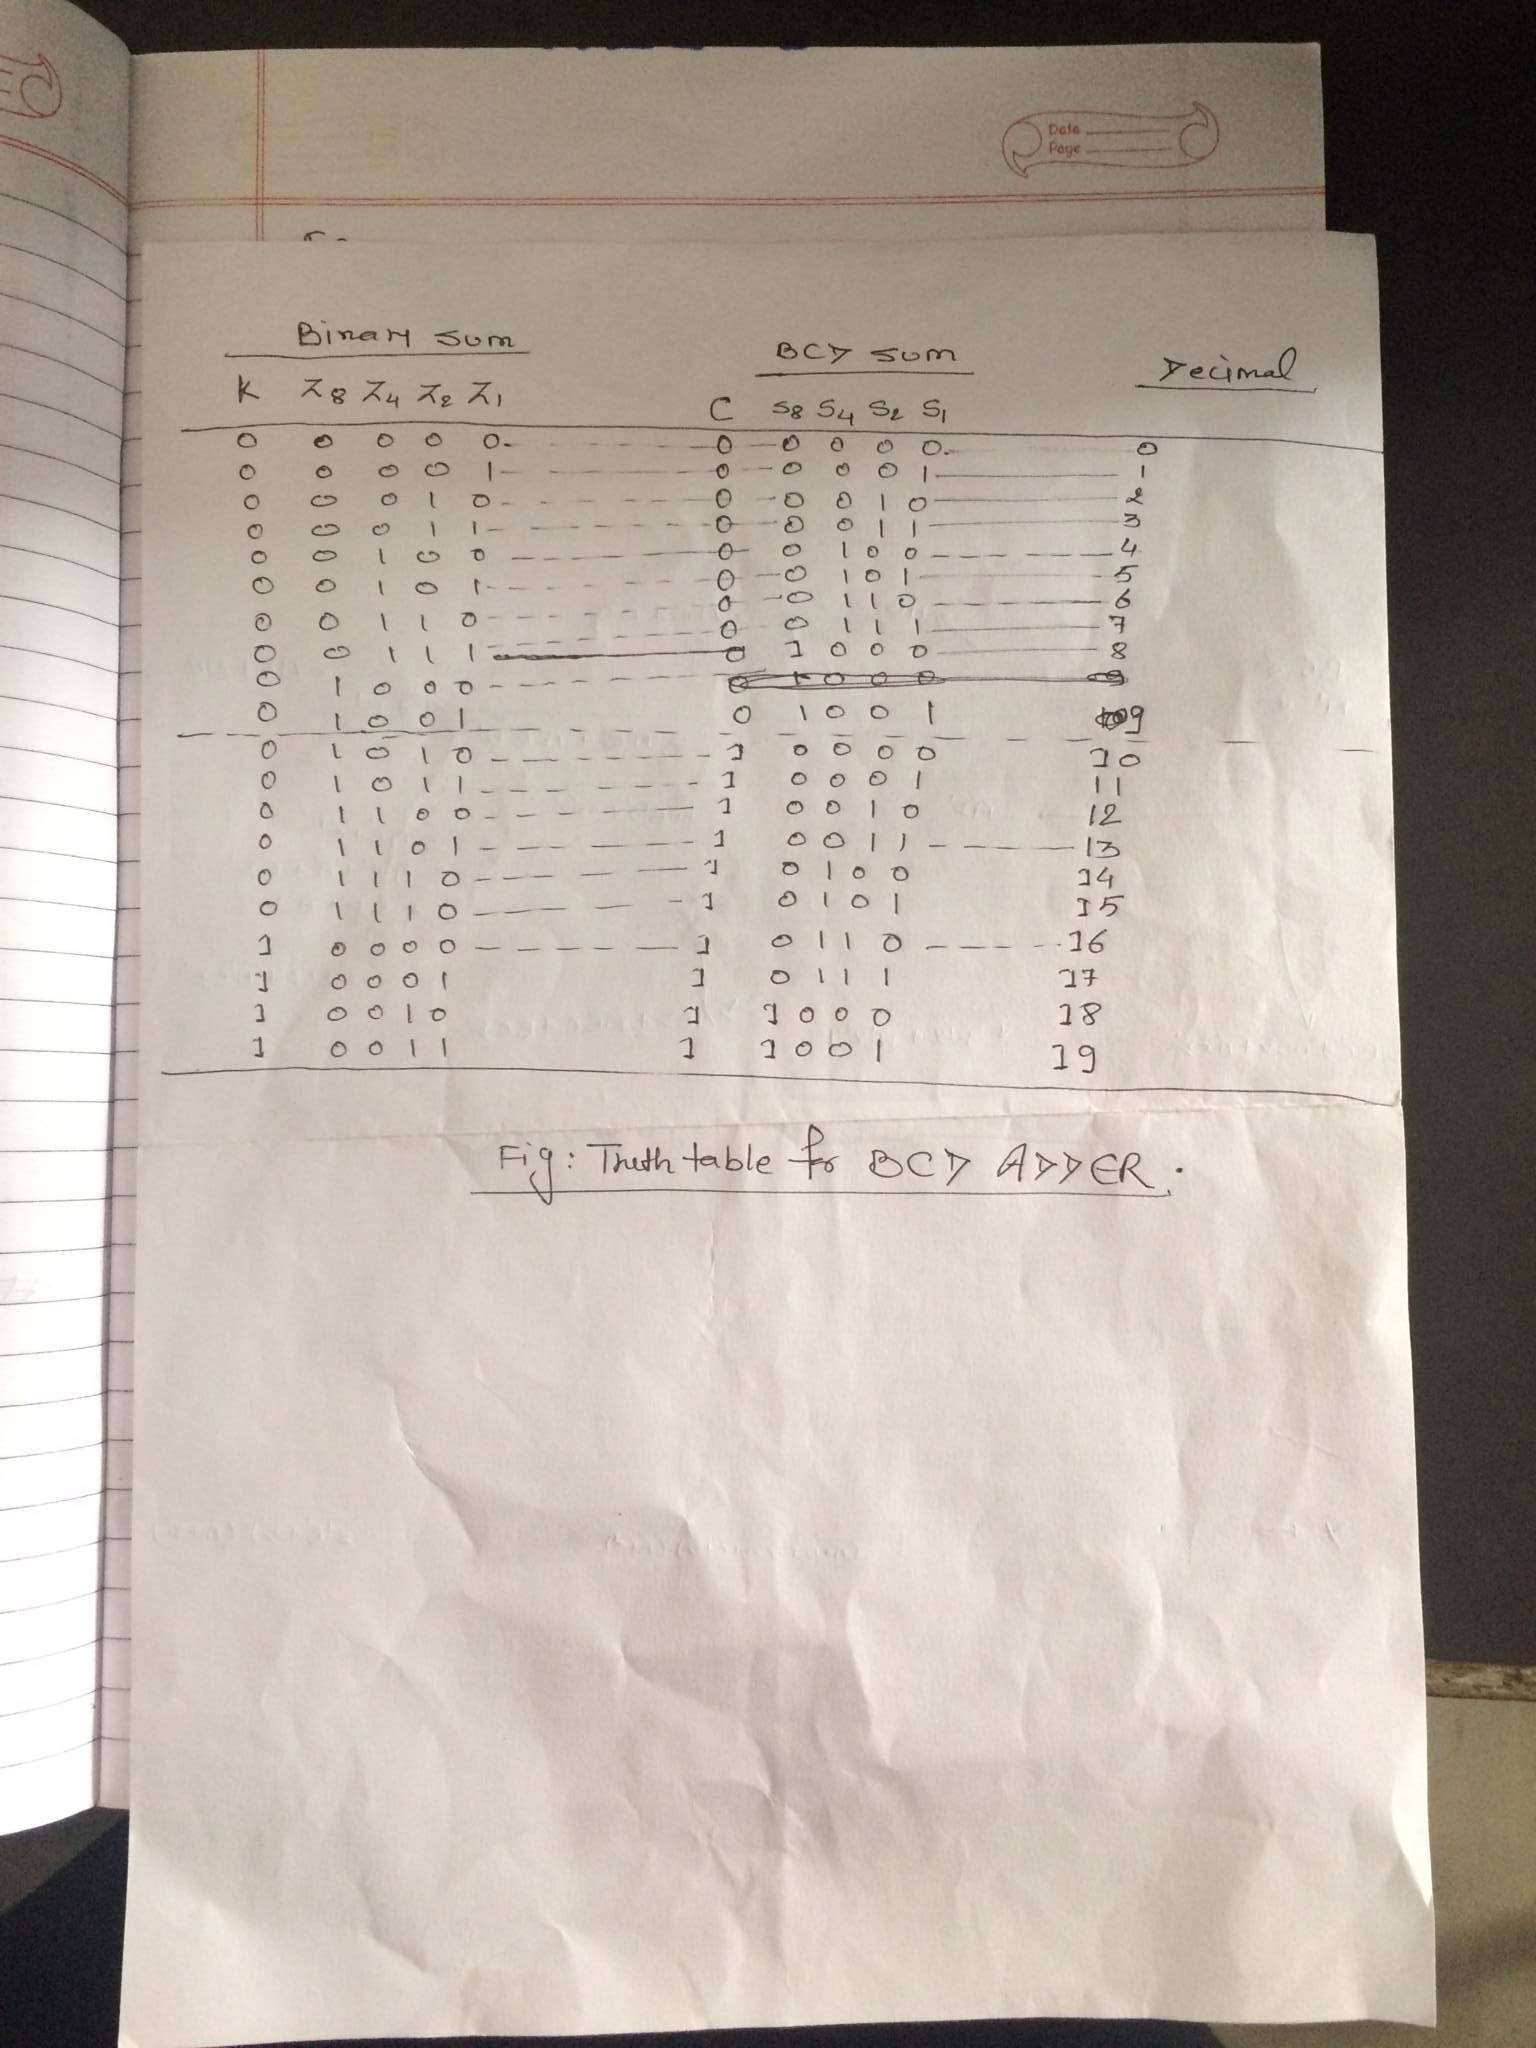 Date
Page
Binary sum BCD sum Decimal
K Z8 Z4 Z2 Z1 C S8 S4 S2 S1
0 0 0 0 0 0 0 0 0 0 0
0 0 0 0 1 0 0 0 0 1 1
0 0 0 1 0 0 0 0 1 0 2
0 0 0 1 1 0 0 0 1 1 3
0 0 1 0 0 0 0 1 0 0 4
0 0 1 0 1 0 0 1 0 1 5
0 0 1 1 0 0 0 1 1 0 6
0 0 1 1 1 0 0 1 1 1 7
0 1 0 0 0 0 1 0 0 0 8
0 1 0 0 1 0 1 0 0 1 9
0 1 0 1 0 1 0 0 0 0 10
0 1 0 1 1 1 0 0 0 1 11
0 1 1 0 0 1 0 0 1 0 12
0 1 1 0 1 1 0 0 1 1 13
0 1 1 1 0 1 0 1 0 0 14
0 1 1 1 0 1 0 1 0 1 15
1 0 0 0 0 1 0 1 1 0 16
1 0 0 0 1 1 0 1 1 1 17
1 0 0 1 0 1 1 0 0 0 18
1 0 0 1 1 1 1 0 0 1 19
Fig: Truth table for BCD ADDER.